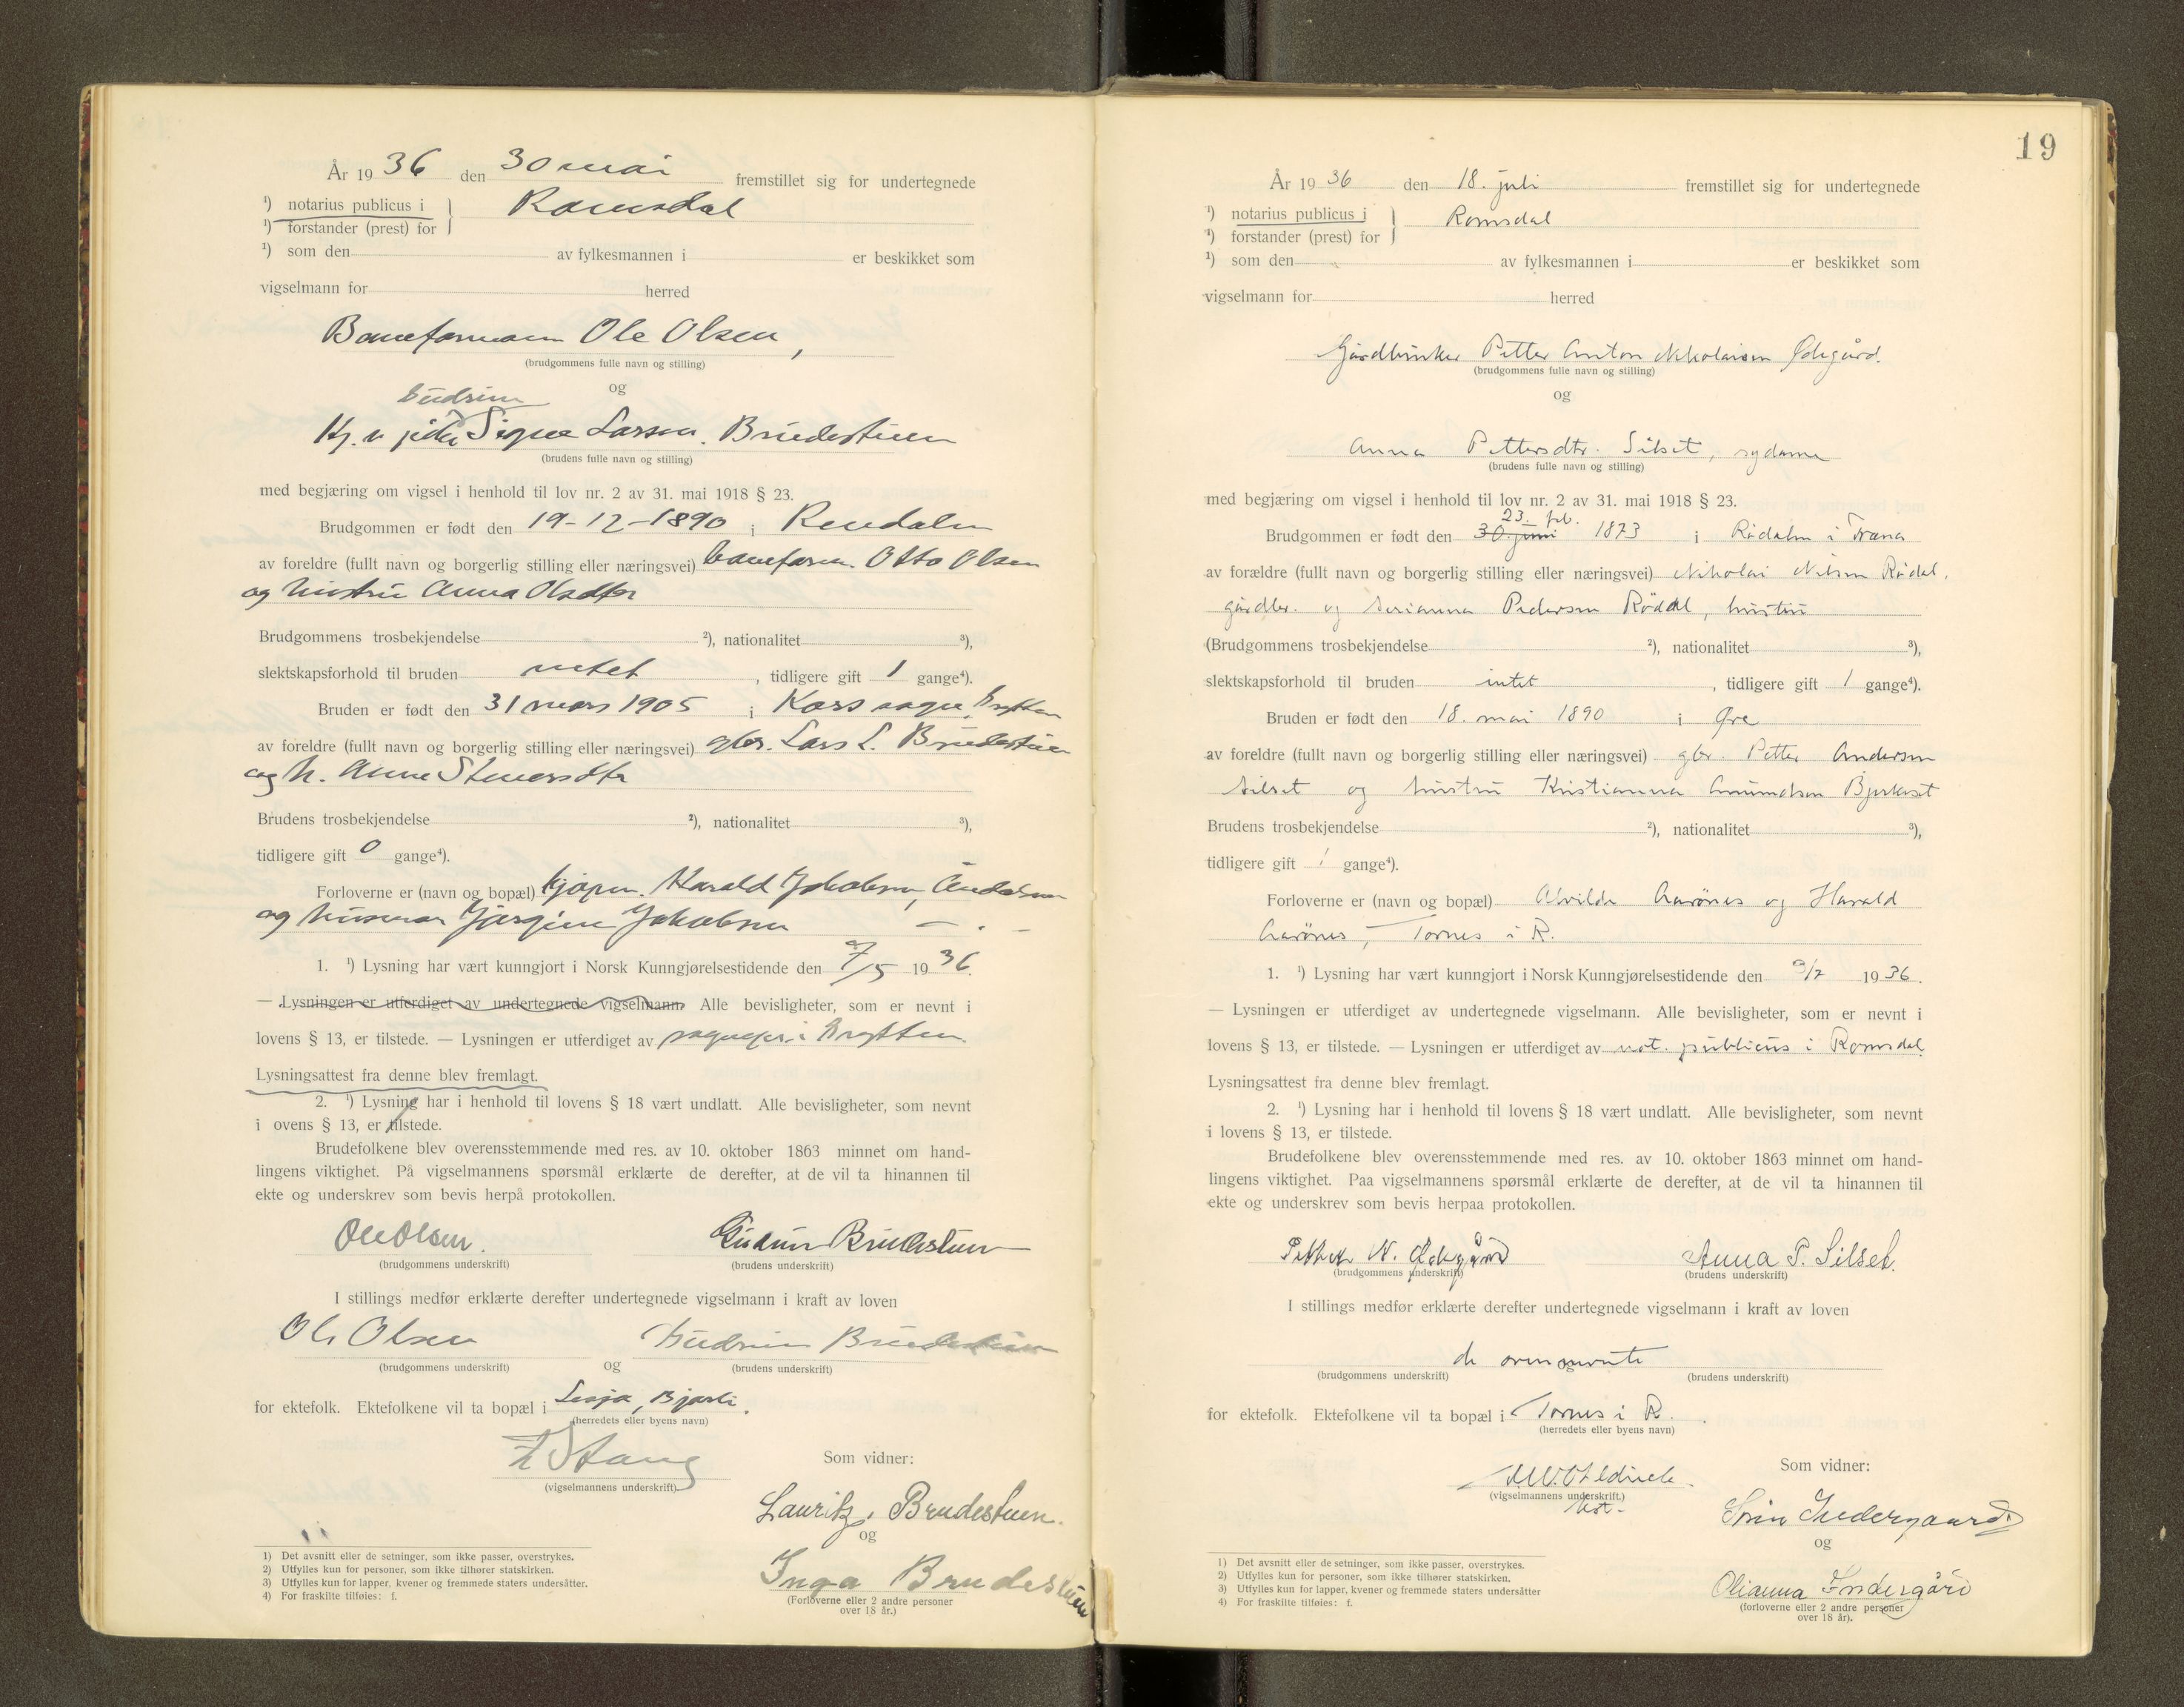 År 1936 den 30 mai fremstillet sig for undertegnede
¹) notarius publicus i
Romsdal
¹) forstander (prest) for
¹) som den av fylkesmannen i er beskikket som
vigselmann for herred
Baneformann Ole Olsen,
(brudgommens fulle navn og stilling)
og
Gudrun
Signe Larsen Bruedstuen
(brudens fulle navn og stilling)
med begjæring om vigsel i henhold til lov nr. 2 av 31. mai 1918 § 23.
Brudgommen er født den 19-12-1890 i Rendalen
av foreldre (fullt navn og borgerlig stilling eller næringsvei) baneform. Otto Olsen
og hustru Anna Olsdtr
Brudgommens trosbekjendelse ²), nationalitet ³),
slektskapsforhold til bruden intet, tidligere gift 1 gange⁴).
Bruden er født den 31 mars 1905 i Kors sogn, Grytten
av foreldre (fullt navn og borgerlig stilling eller næringsvei) gbr. Lars L. Brudestuen
og h. Anne Stenersdtr
Brudens trosbekjendelse ²), nationalitet ³),
tidligere gift 0 gange⁴).
Forloverne er (navn og bopæl) kjøpm. Harald Jakobsen, Åndalsnes
og husmor Jørgine Jakobsen — " —
1. ¹) Lysning har vært kunngjort i Norsk Kunngjørelsestidende den 7/5 1936.
— Lysningen er utferdiget av undertegnede vigselmann. Alle bevisligheter, som er nevnt i
lovens § 13, er tilstede. — Lysningen er utferdiget av sognepr. i Grytten.
Lysningsattest fra denne blev fremlagt.
2. ¹) Lysning har i henhold til lovens § 18 vært undlatt. Alle bevisligheter, som nevnt
i ovens § 13, er tilstede.
Brudefolkene blev overensstemmende med res. av 10. oktober 1863 minnet om hand-
lingens viktighet. På vigselmannens spørsmål erklærte de derefter, at de vil ta hinannen til
ekte og underskrev som bevis herpå protokollen.
Ole Olsen. Gudrun Brudestuen
(brudgommens underskrift) (brudens underskrift)
I stillings medfør erklærte derefter undertegnede vigselmann i kraft av loven
Ole Olsen Gudrun Brudestuen
(brudgommens underskrift) og (brudens underskrift)
for ektefolk. Ektefolkene vil ta bopæl i Lesja, Bjorli.
(herredets eller byens navn)
Stang
(vigselmannens underskrift).
Som vidner:
Lauritz Brudestuen.
og
Inga Brudestuen
(Forloverne eller 2 andre personer
over 18 år.)
1) Det avsnitt eller de setninger, som ikke passer, overstrykes.
2) Utfylles kun for personer, som ikke tilhører statskirken.
3) Utfylles kun for lapper, kvener og fremmede staters undersåtter.
4) For fraskilte tilføies: f.
19
År 1936 den 18. juli fremstillet sig for undertegnede
¹) notarius publicus i
Romsdal
¹) forstander (prest) for
¹) som den av fylkesmannen i er beskikket som
vigselmann for herred
Gårdbruker Petter Anton Nikolaisen Ødegård.
(brudgommens fulle navn og stilling)
og
Anna Pettersdtr. Silset, sydame
(brudens fulle navn og stilling)
med begjæring om vigsel i henhold til lov nr. 2 av 31. mai 1918 § 23.
23. feb.
Brudgommen er født den 30. juni 1873 i Rødalen i Fræna
av forældre (fullt navn og borgerlig stilling eller næringsvei) Nikolai Nilsen Rødal,
gårdbr. og Serianna Pedersen Røddal, hustru
(Brudgommens trosbekjendelse ²), nationalitet ³),
slektskapsforhold til bruden intet, tidligere gift 1 gange⁴).
Bruden er født den 18. mai 1890 i Øre
av foreldre (fullt navn og borgerlig stilling eller næringsvei) gbr. Petter Andersen
Silset og hustru Kristianna Amundsen Bjerkeset
Brudens trosbekjendelse ²), nationalitet ³),
tidligere gift 1 gange⁴).
Forloverne er (navn og bopæl) Alvilde Aarønes og Harald
Aarønes, Tornes i R.
1. ¹) Lysning har vært kunngjort i Norsk Kunngjørelsestidende den 9/7 1936.
— Lysningen er utferdiget av undertegnede vigselmann. Alle bevisligheter, som er nevnt i
lovens § 13, er tilstede. — Lysningen er utferdiget av not. publicus i Romsdal
Lysningsattest fra denne blev fremlagt.
2. ¹) Lysning har i henhold til lovens § 18 vært undlatt. Alle bevisligheter, som nevnt
i lovens § 13, er tilstede.
Brudefolkene blev overensstemmende med res. av 10. oktober 1863 minnet om hand-
lingens viktighet. Paa vigselmannens spørsmål erklærte de derefter, at de vil ta hinannen til
ekte og underskrev som bevis herpaa protokollen.
Petter N. Ødegård Anna P. Silset.
(brudgommens underskrift) (brudens underskrift)
I stillings medfør erklærte derefter undertegnede vigselmann i kraft av loven
de ovennevnte
(brudgommens underskrift) og (brudens underskrift)
for ektefolk. Ektefolkene vil ta bopæl i Tornes i R.
(herredets eller byens navn)
(vigselmannens underskrift.)
Som vidner:
Indergaard.
og
Olianna Indergård
(forloverne eller 2 andre personer
over 18 år).
1) Det avsnitt eller de setninger, som ikke passer, overstrykes.
2) Utfylles kun for personer, som ikke tilhører statskirken.
3) Utfylles kun for lapper, kvener og fremmede staters undersåtter
4) For fraskilte tilføies: f.